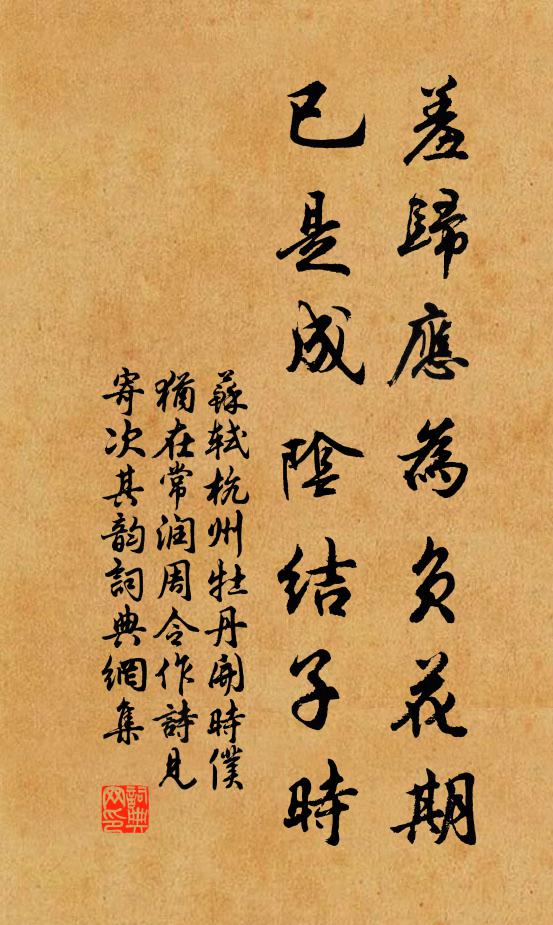 羞歸應為負花期
已是成陰結子時
蘇軾杭州牡丹開時僕
猶在常潤周令作詩見
寄次其韵詞典網集
詞典網印